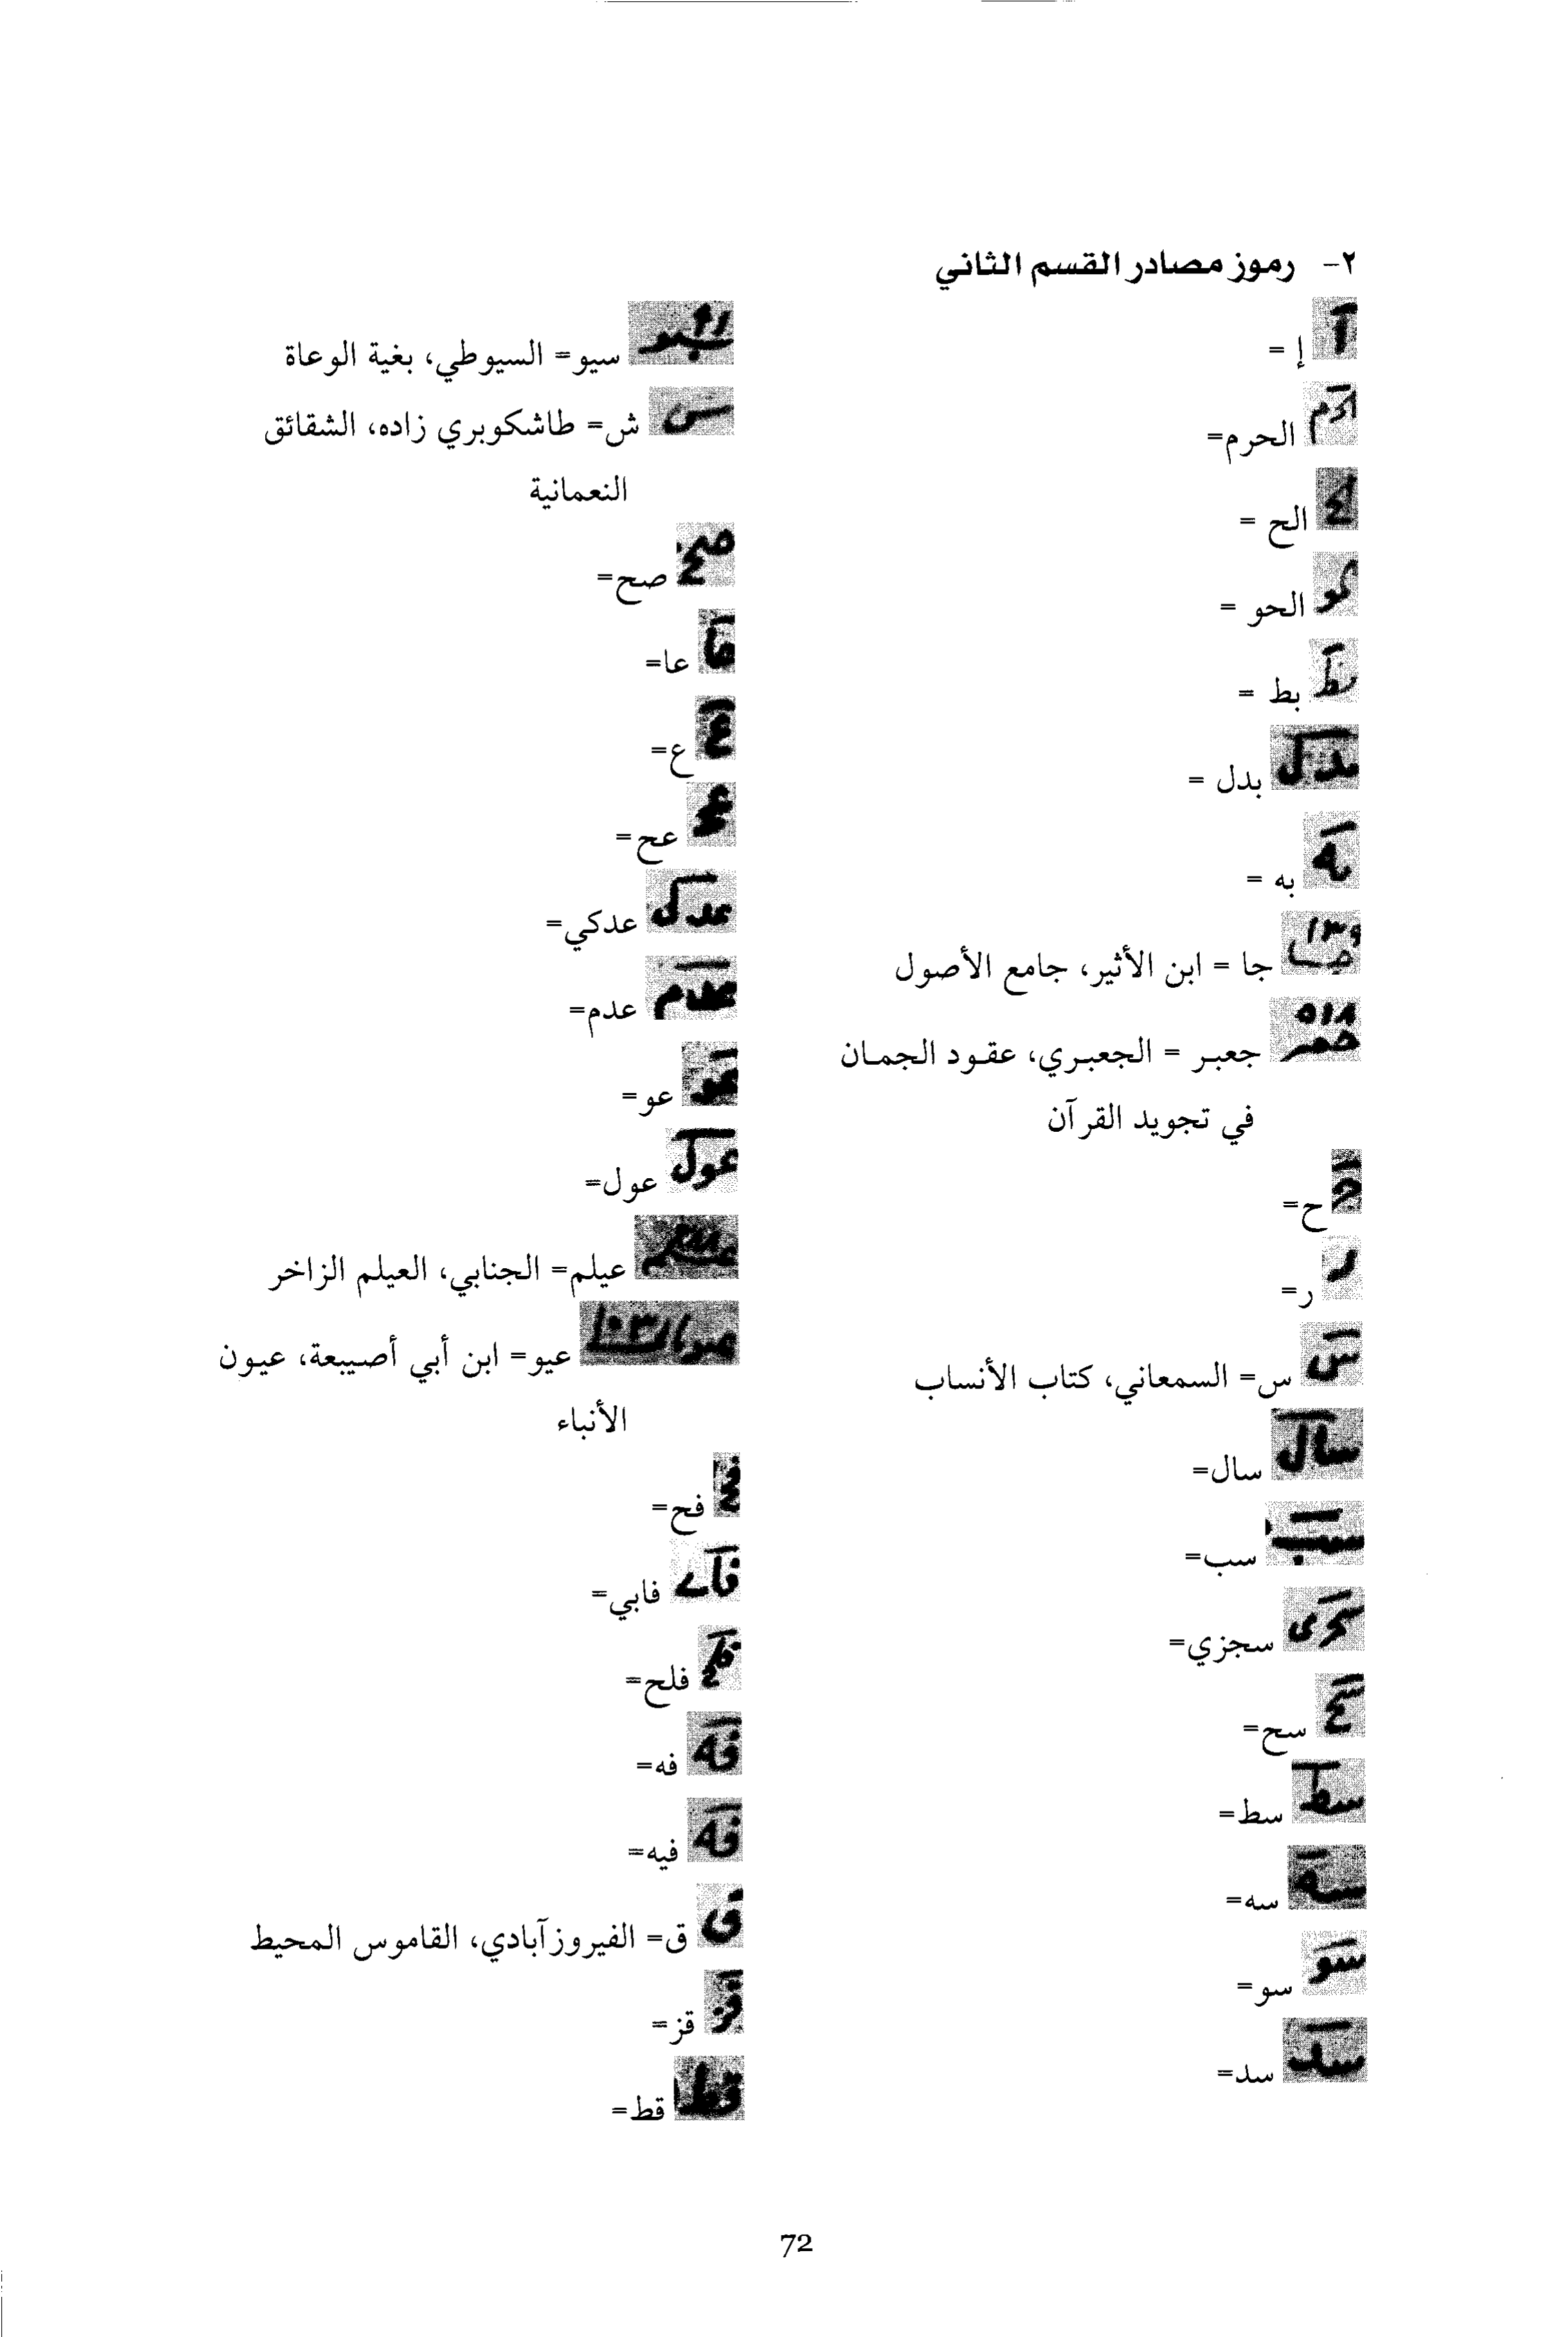 ٢- رموز مصادر القسم الثاني
إ =
الحرم=
الح =
الحو =
بط =
بدل =
به =
جا = ابن الأثير، جامع الأصول
جعبر = الجعبري، عقود الجمان
في تجويد القرآن
ح=
ر=
س= السمعاني، كتاب الأنساب
سال=
سب=
سجزي=
سح=
سط=
سه=
سو=
سد=
سيو= السيوطي، بغية الوعاة
ش= طاشكوبري زاده، الشقائق
النعمانية
صح=
عا=
ع=
عح=
عدكي=
عدم=
عو=
عول=
عيلم= الجنابي، العيلم الزاخر
عيو= ابن أبي أصيبعة، عيون
الأنباء
فح=
فابي=
فلح=
فه=
فيه=
ق= الفيروزآبادي، القاموس المحيط
قز=
قط=
72